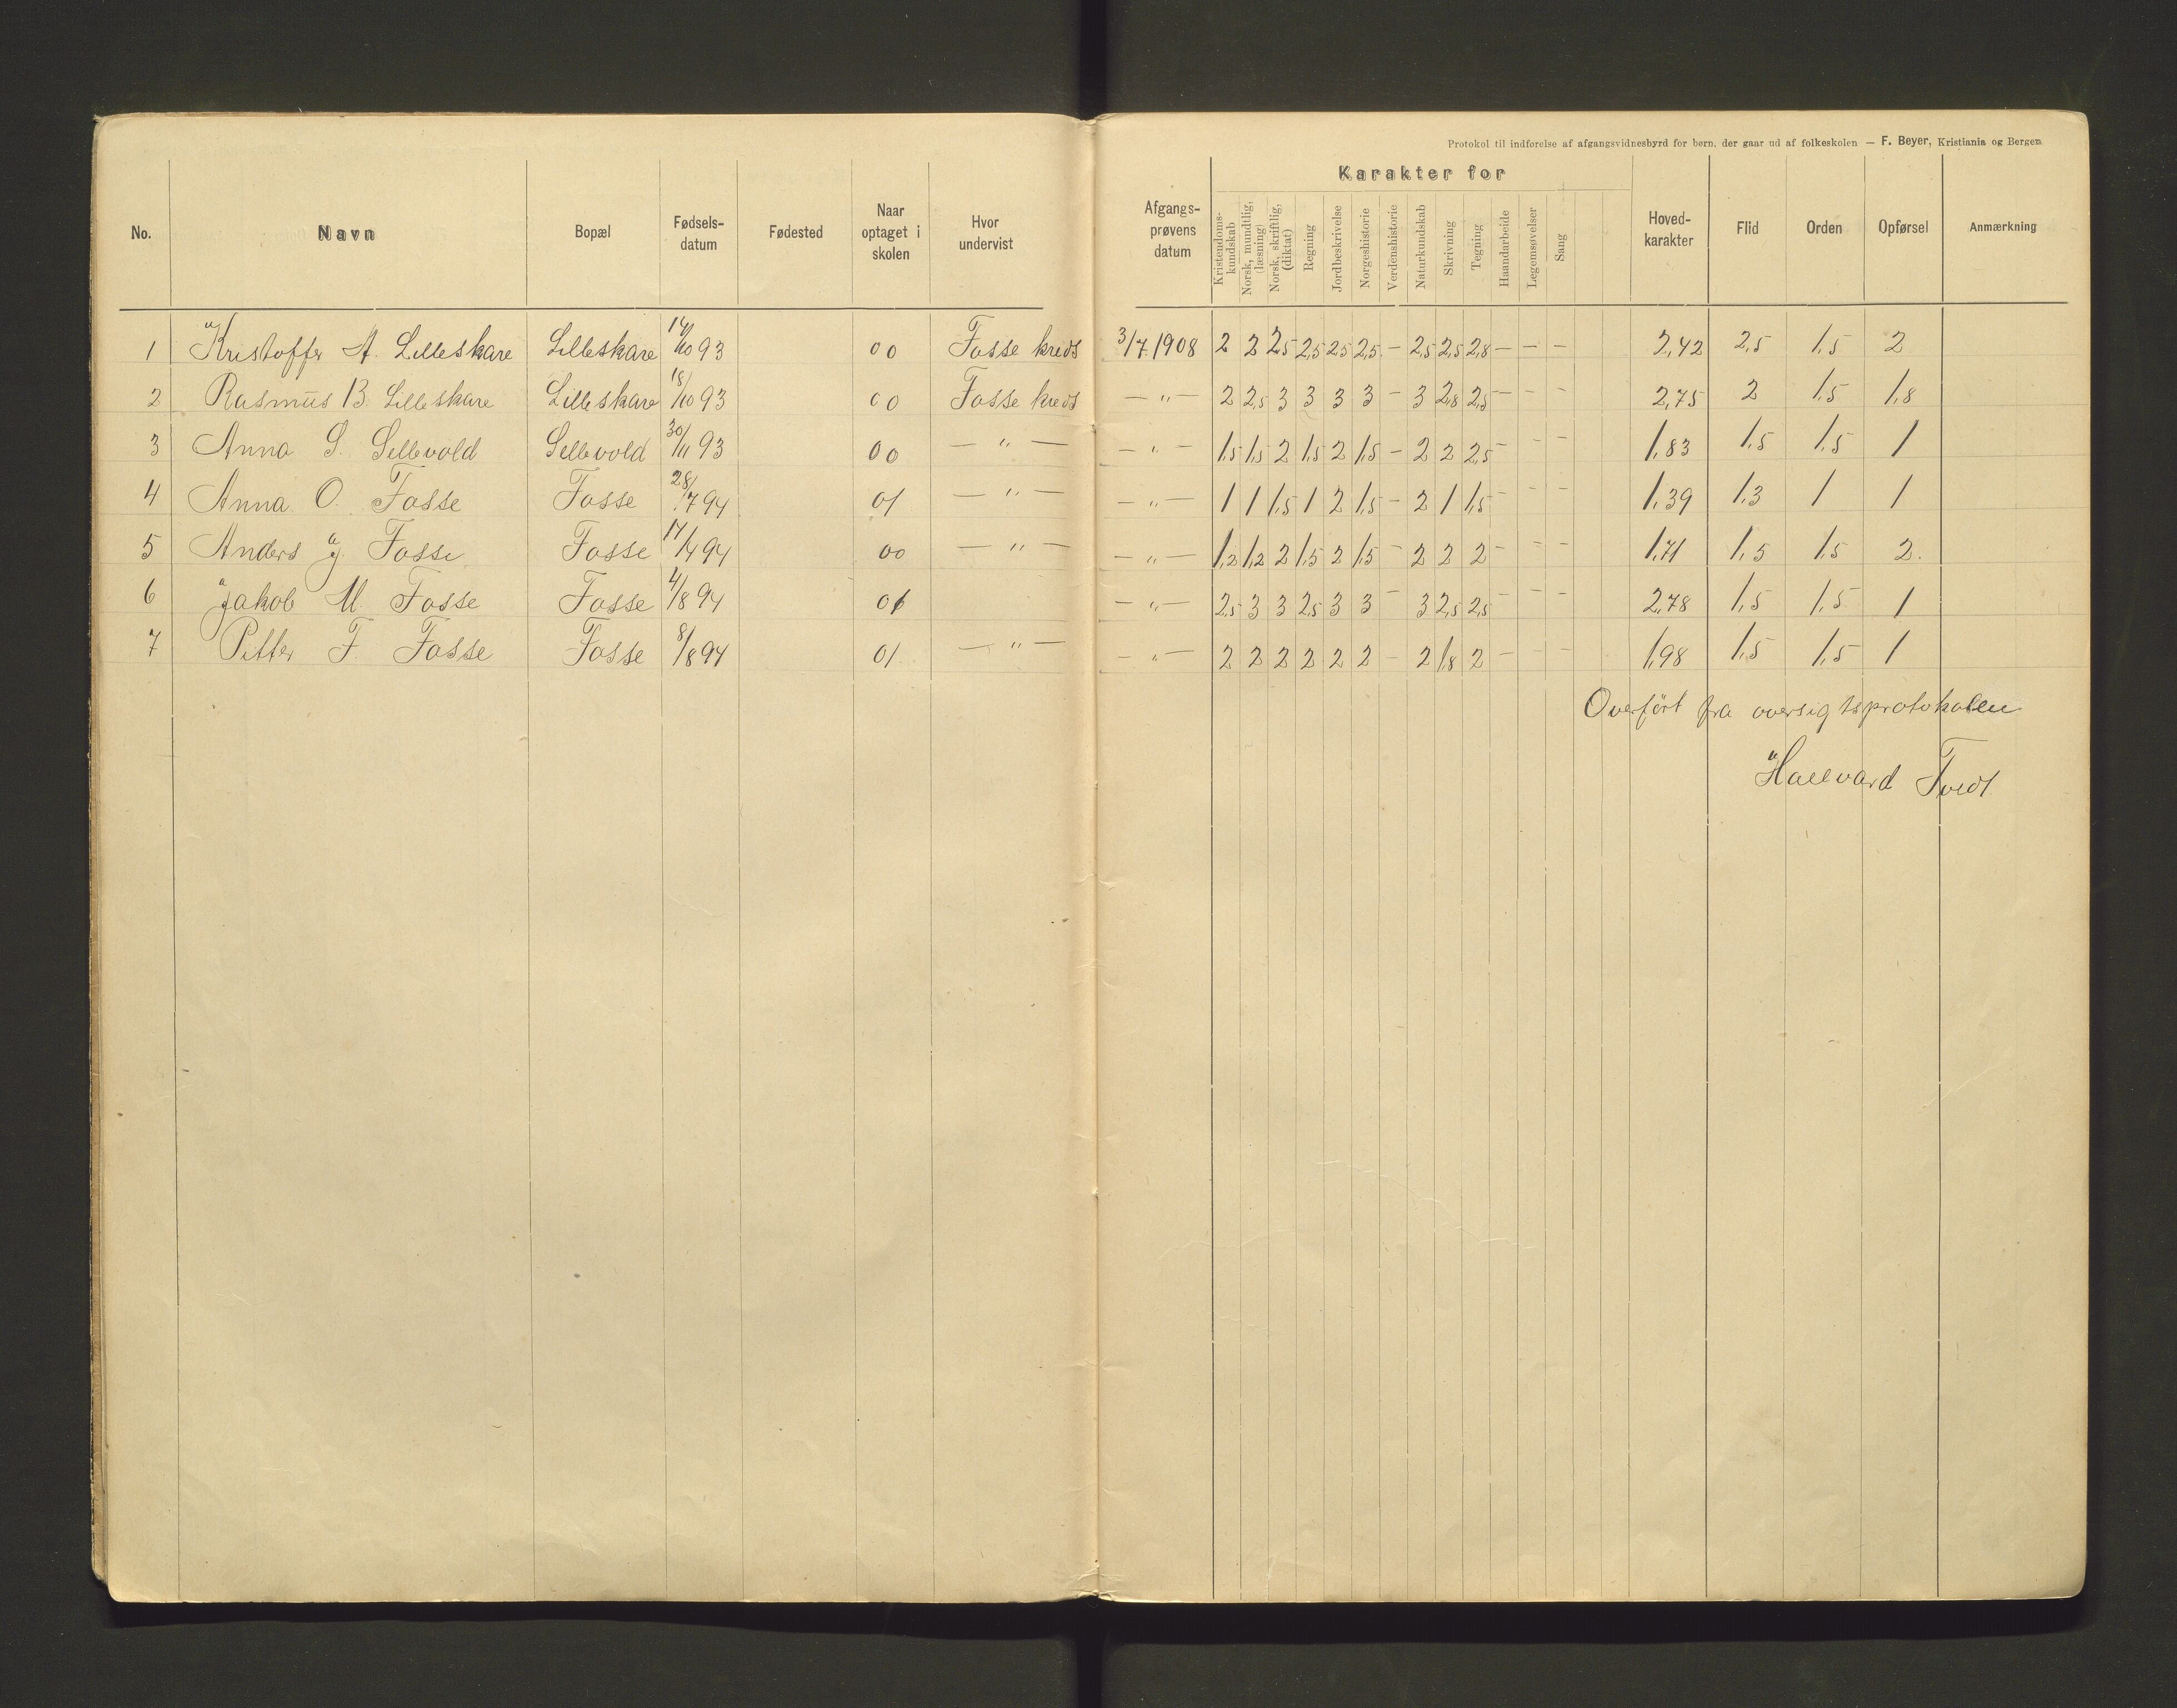 Protokol til indførelse af afgangsvidnesbyrd for børn, der gaar ud af folkeskolen — F. Beyer, Kristiania og Bergen
No. Navn Bopæl Fødsels-datum Fødested Naar optaget i skolen Hvor undervist Afgangs-prøvens datum Karakter for Kristendoms-kundskab Norsk, mundtlig, (læsning) Norsk, skriftlig, (diktat) Regning Jordbeskrivelse Norgeshistorie Verdenshistorie Naturkundskab Skrivning Tegning Haandarbeide Legemsøvelser Sang Hoved-karakter Flid Orden Opførsel Anmærkning
1 Kristoffer A. Lilleskare Lilleskare 14/10 93 00 Fosse kreds 3/7 1908 2 2 2,5 2,5 2,5 2,5 - 2,5 2,5 2,8 - - - 2,42 2,5 1,5 2
2 Rasmus B. Lilleskare Lilleskare 18/10 93 00 Fosse kreds — " — 2 2,5 3 3 3 3 - 3 2,8 2,5 - - - 2,75 2 1,5 1,8
3 Anna S. Sellevold Sellevold 30/11 93 00 — " — — " — 1,5 1,5 2 1,5 2 1,5 - 2 2 2,5 - - - 1,83 1,5 1,5 1
4 Anna O. Fosse Fosse 28/7 94 01 — " — — " — 1 1 1,5 1 2 1,5 - 2 1 1,5 - - - 1,39 1,3 1 1
5 Anders J. Fosse Fosse 17/4 94 00 — " — — " — 1,2 1,2 2 1,5 2 1,5 - 2 2 2 - - - 1,71 1,5 1,5 2.
6 Jakob M. Fosse Fosse 4/8 94 01 — " — 2,5 3 3 2,5 3 3 - 3 2,5 2,5 - - - 2,78 1,5 1,5 1
7 Petter F. Fosse Fosse 8/8 94 01 — " — — " — 2 2 2 2 2 2 - 2 1,8 2 - - - 1,98 1,5 1,5 1
Overført fra oversigtsprotokolen
Hallvard Tvedt